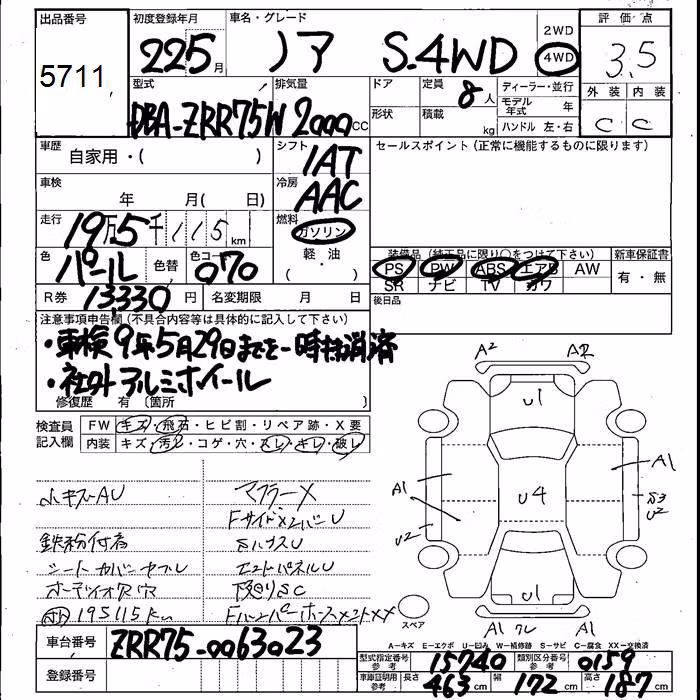 出品番号
5711
初度登録年月
225月
車名・グレード
ノア S.4WD
2WD
4WD
評価点
3.5
外装 内装
C C
型式
DBA-ZRR75W
排気量
2000cc
ドア
形状
定員
8人
積載
kg
ディーラー・並行
モデル年式 年
ハンドル 左・右
車歴
自家用・( )
シフト
1AT
セールスポイント (正常に機能するものに限ります)
車検
年 月( 日)
冷房
AAC
走行
19万5千115km
燃料
ガソリン
軽・油
( )
色
パール
色替
色コード
070
装備品 (純正品に限り○をつけて下さい)
新車保証書
PS PW ABS エアB AW
SR ナビ TV カワ
有・無
R券
13,330円
名変期限 月 日
後日品
注意事項申告欄 (不具合内容等は具体的に記入して下さい)
・車検9年5月29日まで一時抹消済
・社外アルミホイール
修復歴 有 〔箇所 〕
検査員記入欄
FW キズ・飛石・ヒビ割・リペア跡・X要
内装 キズ・汚レ・コゲ・穴・スレ・キレ・破レ
小キズAU
マフラーX
Fサイドメンバー U
鉄粉付着
シートカバー
エンドパネルU
オーディオ穴
下廻りSC
195115km
A2 AR
U1
A1 A1
A1
U4
S3
U2 U2
U1
A1 A1
スペア
A-キズ E-エクボ U-凹み W-補修跡 S-サビ C-腐食 XX-交換済
車台番号
ZRR75-0063023
登録番号
型式指定番号 参考
15740
類別区分番号 参考
0159
車庫証明用 参考
長さ 463cm
幅 172cm
高さ 187cm